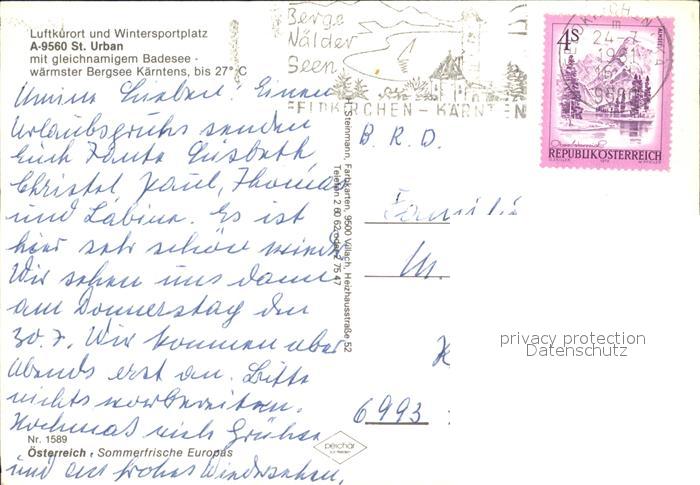 Luftkurort und Wintersportplatz
A-9560 St. Urban
mit gleichnamigem Badesee -
wärmster Bergsee Kärntens, bis 27° C
Berge
Wälder
Seen
FELDKIRCHEN - KÄRNTEN
24-7
1981
4S
REPUBLIK ÖSTERREICH
Einen
Urlaubsgruhs senden
Euch Tante Lisbeth
Christel, Paul, Thomas
und Sabine. Es ist
hier sehr schön
Wir sehen uns dann
am Donnerstag den
30.7. Wir kommen aber
Abends erst an. Bitte
nichts vorbereiten.
Nochmals viele Grühse
und auf frohes Wiedersehen,
H. Steinmann, Farbkarten, 9500 Villach, Heizhausstraße 52
B. R. D.
Familie
M.
6993
privacy protection
Datenschutz
Nr. 1589
Österreich, Sommerfrische Europas